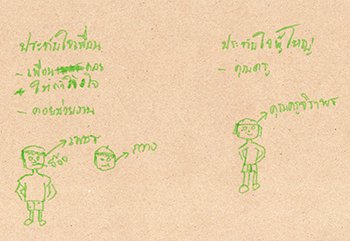 ประทับใจเพื่อน
- เพื่อน คอย
ให้กำลังใจ
- คอยช่วยงาน
กวาง
ประทับใจผู้ใหญ่
- คุณครู
คุณครูจิราพร